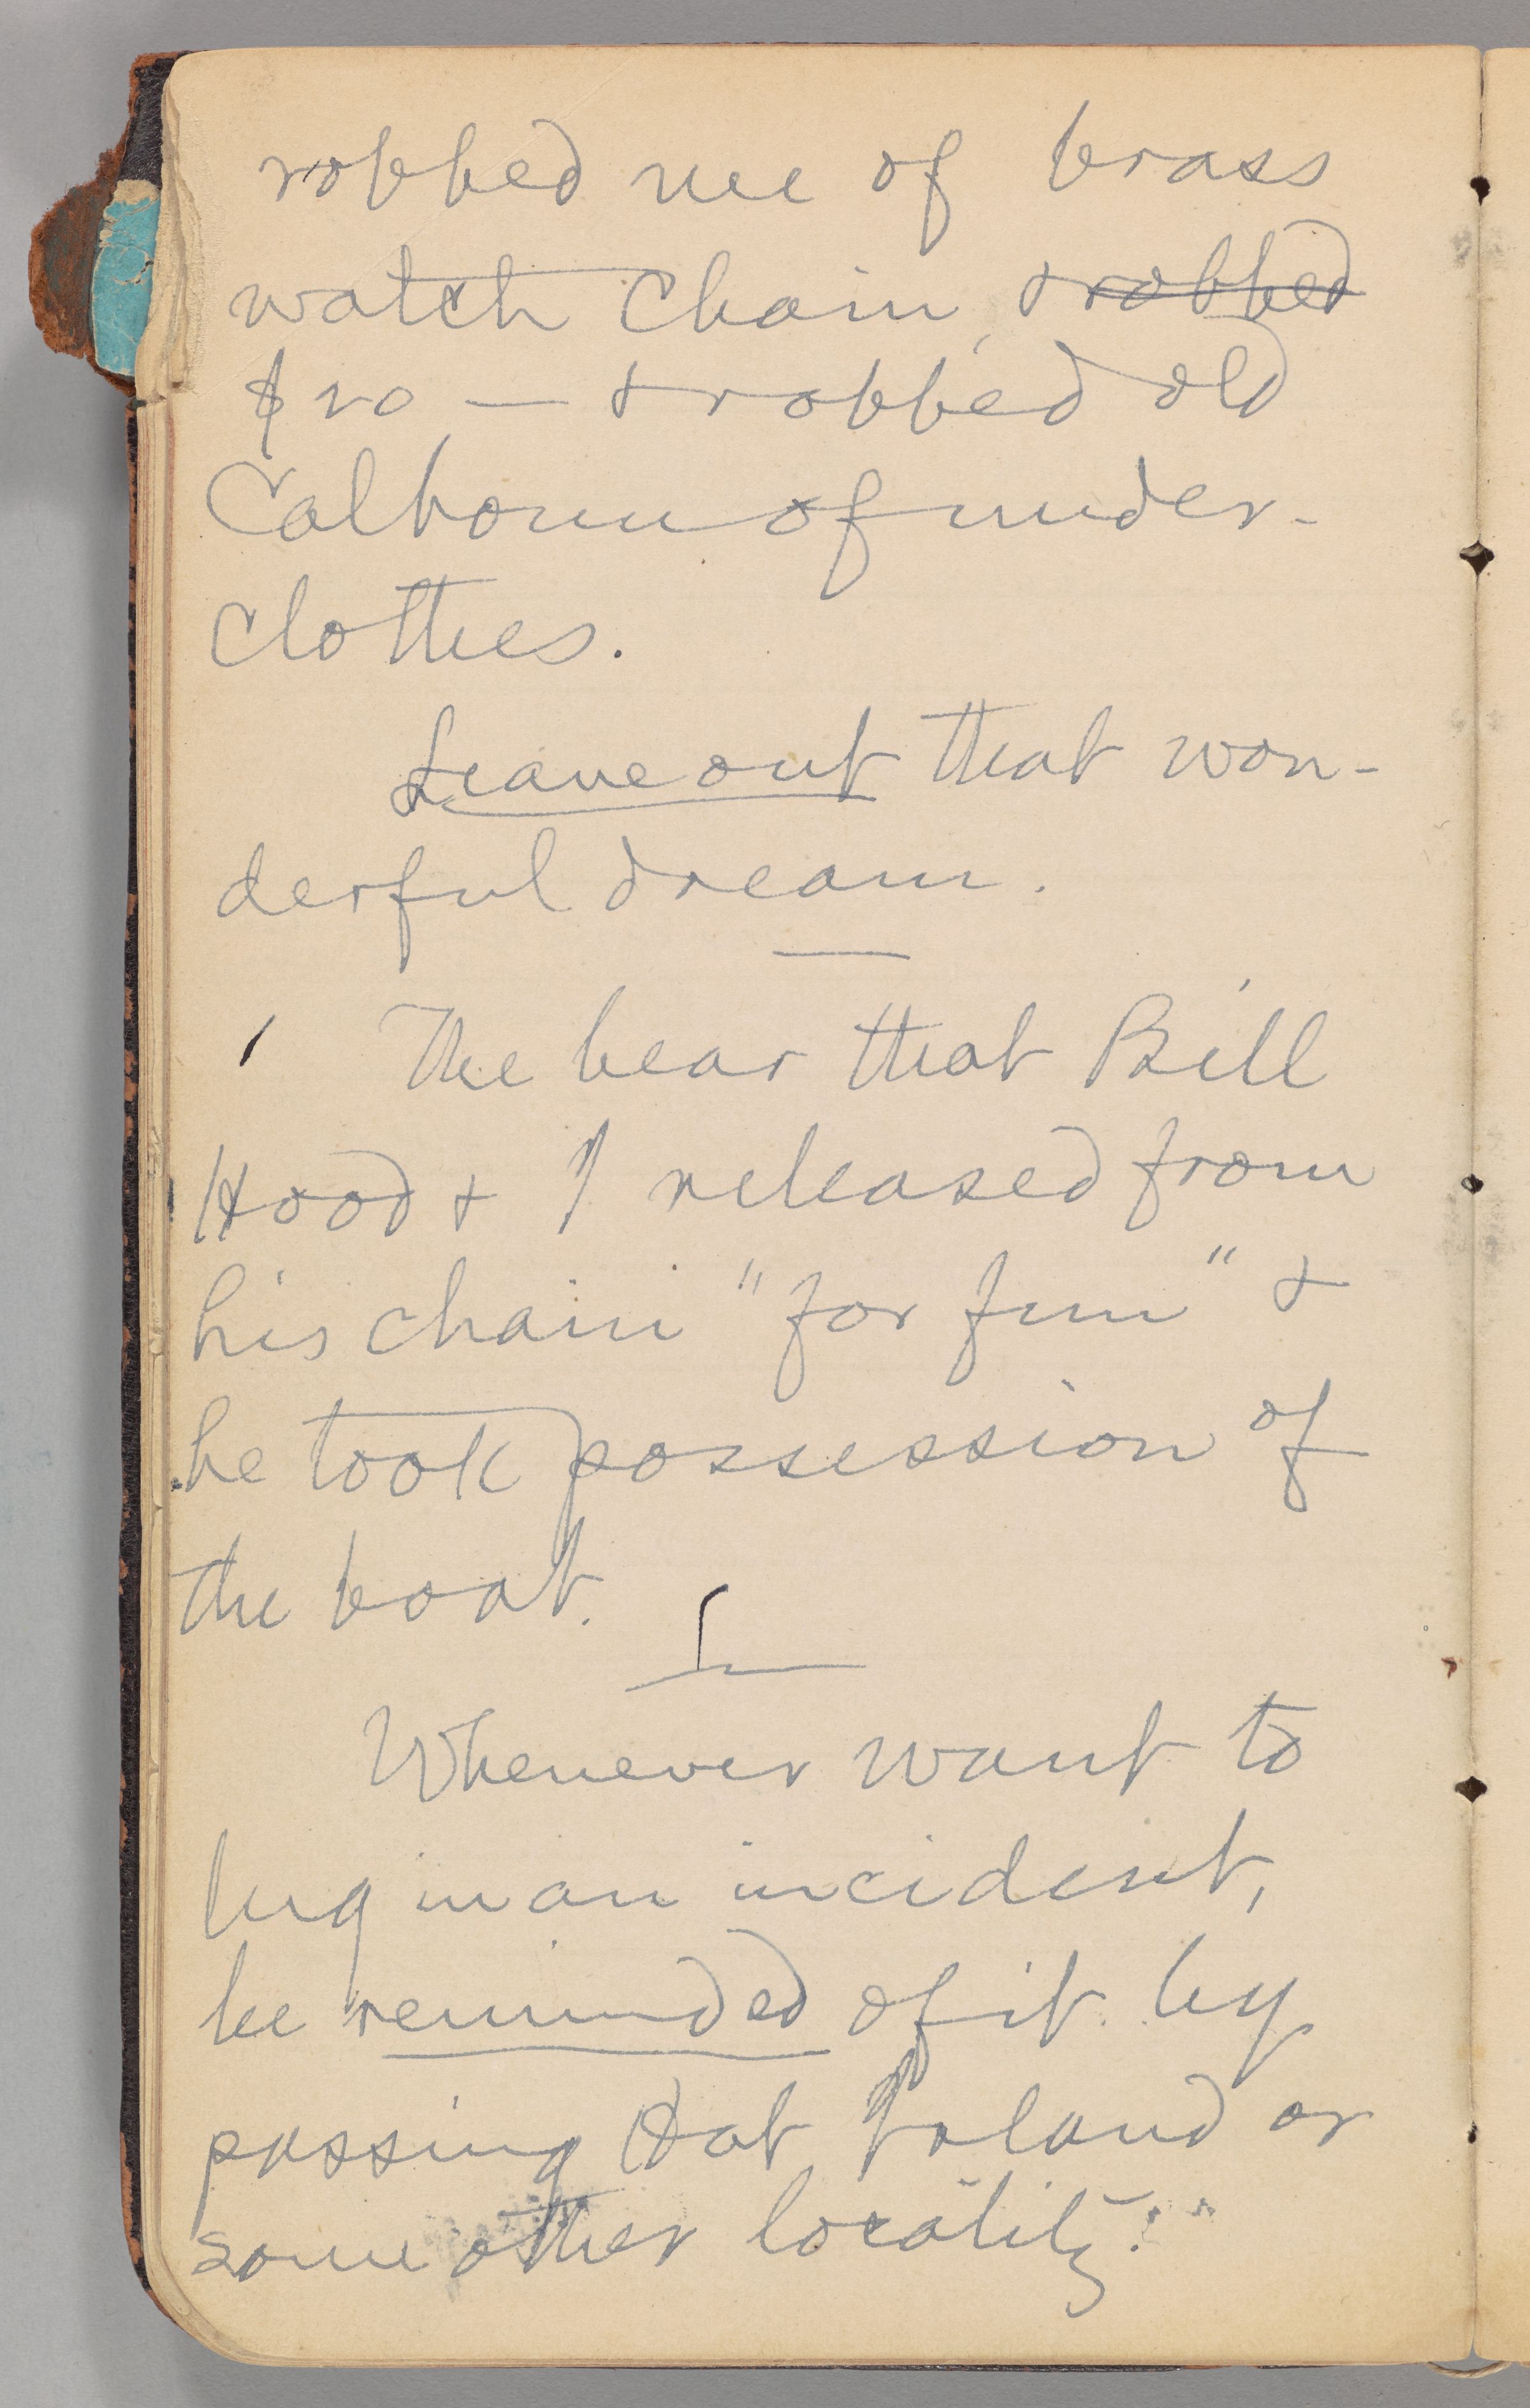 robbed me of brass
watch chain, & robbed
$20 — & robbed old
Calhoun of under-
clothes.
Leave out that won-
derful dream.
The bear that Bill
Hood & I released from
his chain "for fun" &
he took possession of
the boat.
Whenever want to
lug in an incident,
be reminded of it by
passing Hat Island or
some other locality.